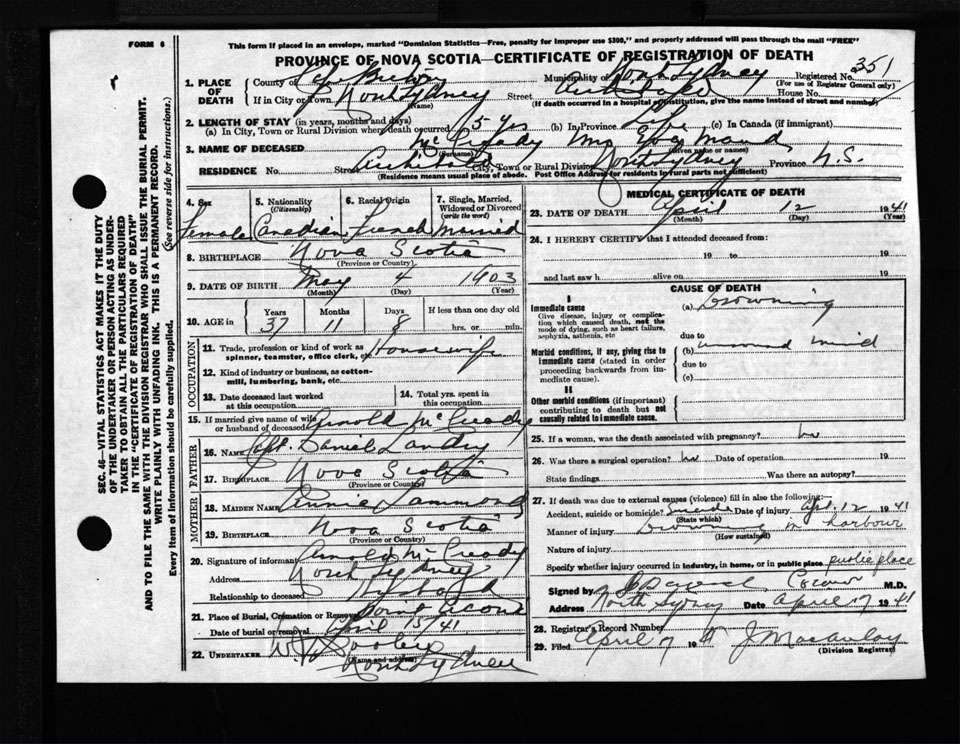 FORM 6
This form if placed in an envelope, marked "Dominion Statistics—Free, penalty for improper use $300," and properly addressed will pass through the mail "FREE"
PROVINCE OF NOVA SCOTIA—CERTIFICATE OF REGISTRATION OF DEATH
SEC. 46—VITAL STATISTICS ACT MAKES IT THE DUTY
OF THE UNDERTAKER OR PERSON ACTING AS UNDER-
TAKER TO OBTAIN ALL THE PARTICULARS REQUIRED
IN THE "CERTIFICATE OF REGISTRATION OF DEATH"
AND TO FILE THE SAME WITH THE DIVISION REGISTRAR WHO SHALL ISSUE THE BURIAL PERMIT.
WRITE PLAINLY WITH UNFADING INK. THIS IS A PERMANENT RECORD.
Every item of information should be carefully supplied. (See reverse side for instructions.)
1. PLACE OF DEATH
County of Cape Breton Municipality of North Sydney Registered No. 351
(For use of Registrar General only)
If in City or Town North Sydney Street House No.
(Name) (If death occurred in a hospital or institution, give the name instead of street and number)
2. LENGTH OF STAY (in years, months and days)
(a) In City, Town or Rural Division where death occurred 5 yrs (b) In Province Life (c) In Canada (if immigrant)
3. NAME OF DECEASED McCready Mrs Maud
(Surname) (Given name or names)
RESIDENCE No. Street City, Town or Rural Division North Sydney Province N.S.
(Residence means usual place of abode. Post Office Address for residents in rural parts not sufficient)
4. Sex 5. Nationality (Citizenship) 6. Racial Origin 7. Single, Married, Widowed or Divorced (write the word)
Female Canadian French Married
8. BIRTHPLACE Nova Scotia
(Province or Country)
9. DATE OF BIRTH May 4 1903
(Month) (Day) (Year)
10. AGE in Years Months Days If less than one day old
37 11 8 hrs. or min.
OCCUPATION
11. Trade, profession or kind of work as spinner, teamster, office clerk, etc. Housewife
12. Kind of industry or business, as cotton-mill, lumbering, bank, etc.
13. Date deceased last worked at this occupation
14. Total yrs. spent in this occupation
15. If married give name of wife or husband of deceased Arnold McCready
FATHER
16. NAME Capt. Daniel Landry
17. BIRTHPLACE Nova Scotia
(Province or Country)
MOTHER
18. MAIDEN NAME Annie
19. BIRTHPLACE Nova Scotia
(Province or Country)
20. Signature of informant Arnold McCready
Address North Sydney
Relationship to deceased Husband
21. Place of Burial, Cremation or Removal Point Aconi
Date of burial or removal April 15/41
22. UNDERTAKER
(Name and address)
North Sydney
MEDICAL CERTIFICATE OF DEATH
23. DATE OF DEATH April 12 1941
(Month) (Day) (Year)
24. I HEREBY CERTIFY that I attended deceased from:
19 to 19
and last saw h alive on 19
CAUSE OF DEATH
I
Immediate cause
Give disease, injury or complication which caused death, not the mode of dying, such as heart failure, asphyxia, asthenia, etc
(a) Drowning
due to
Morbid conditions, if any, giving rise to immediate cause (stated in order proceeding backwards from immediate cause).
(b) unsound mind
due to
(c)
II
Other morbid conditions (if important) contributing to death but not causally related to immediate cause.
25. If a woman, was the death associated with pregnancy? No
26. Was there a surgical operation? No Date of operation 19
State findings Was there an autopsy?
27. If death was due to external causes (violence) fill in also the following:—
Accident, suicide or homicide? Suicide Date of injury Apr. 12 1941
(State which)
Manner of injury Drowning in harbour
(How sustained)
Nature of injury
Specify whether injury occurred in industry, in home, or in public place public place
Signed by Coroner M.D.
Address North Sydney Date April 17 1941
28. Registrar's Record Number
29. Filed April 17 1941 J. Macaulay
(Division Registrar)